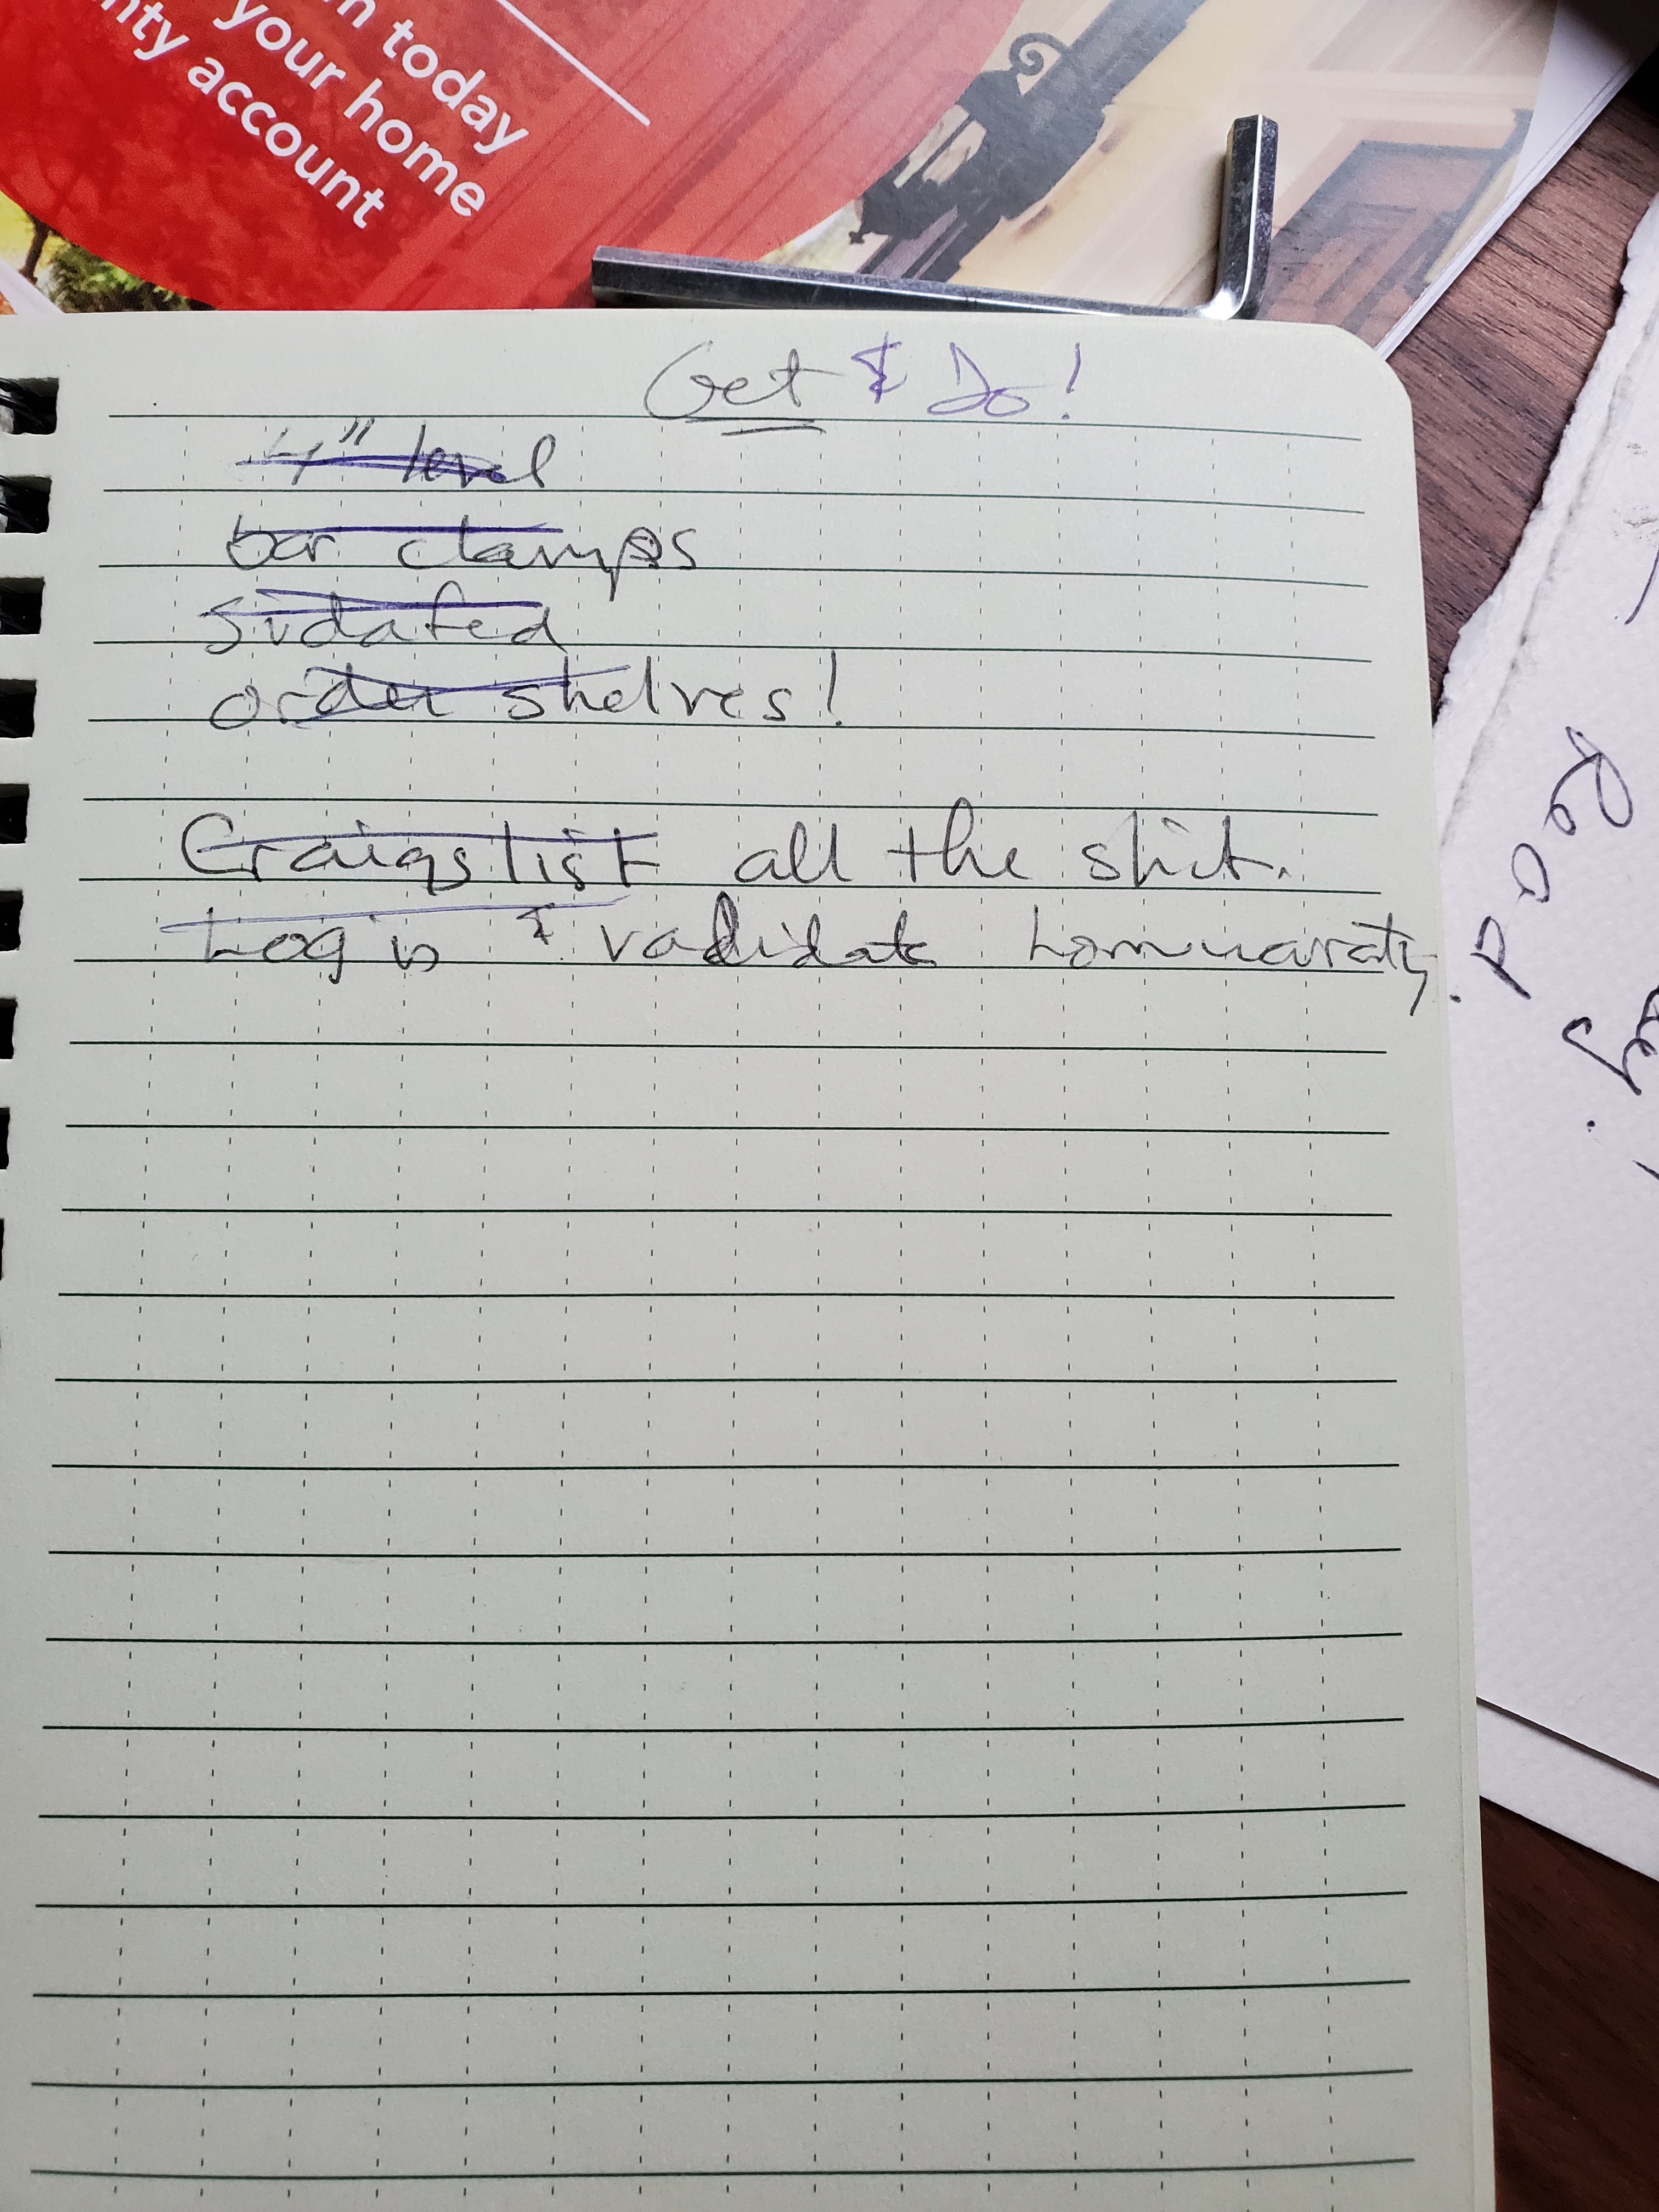 n today
your home
nty account
Get & Do!
4" level
bar clamps
Sudafed
order shelves!
Craigslist all the shit.
Log in & validate
Read